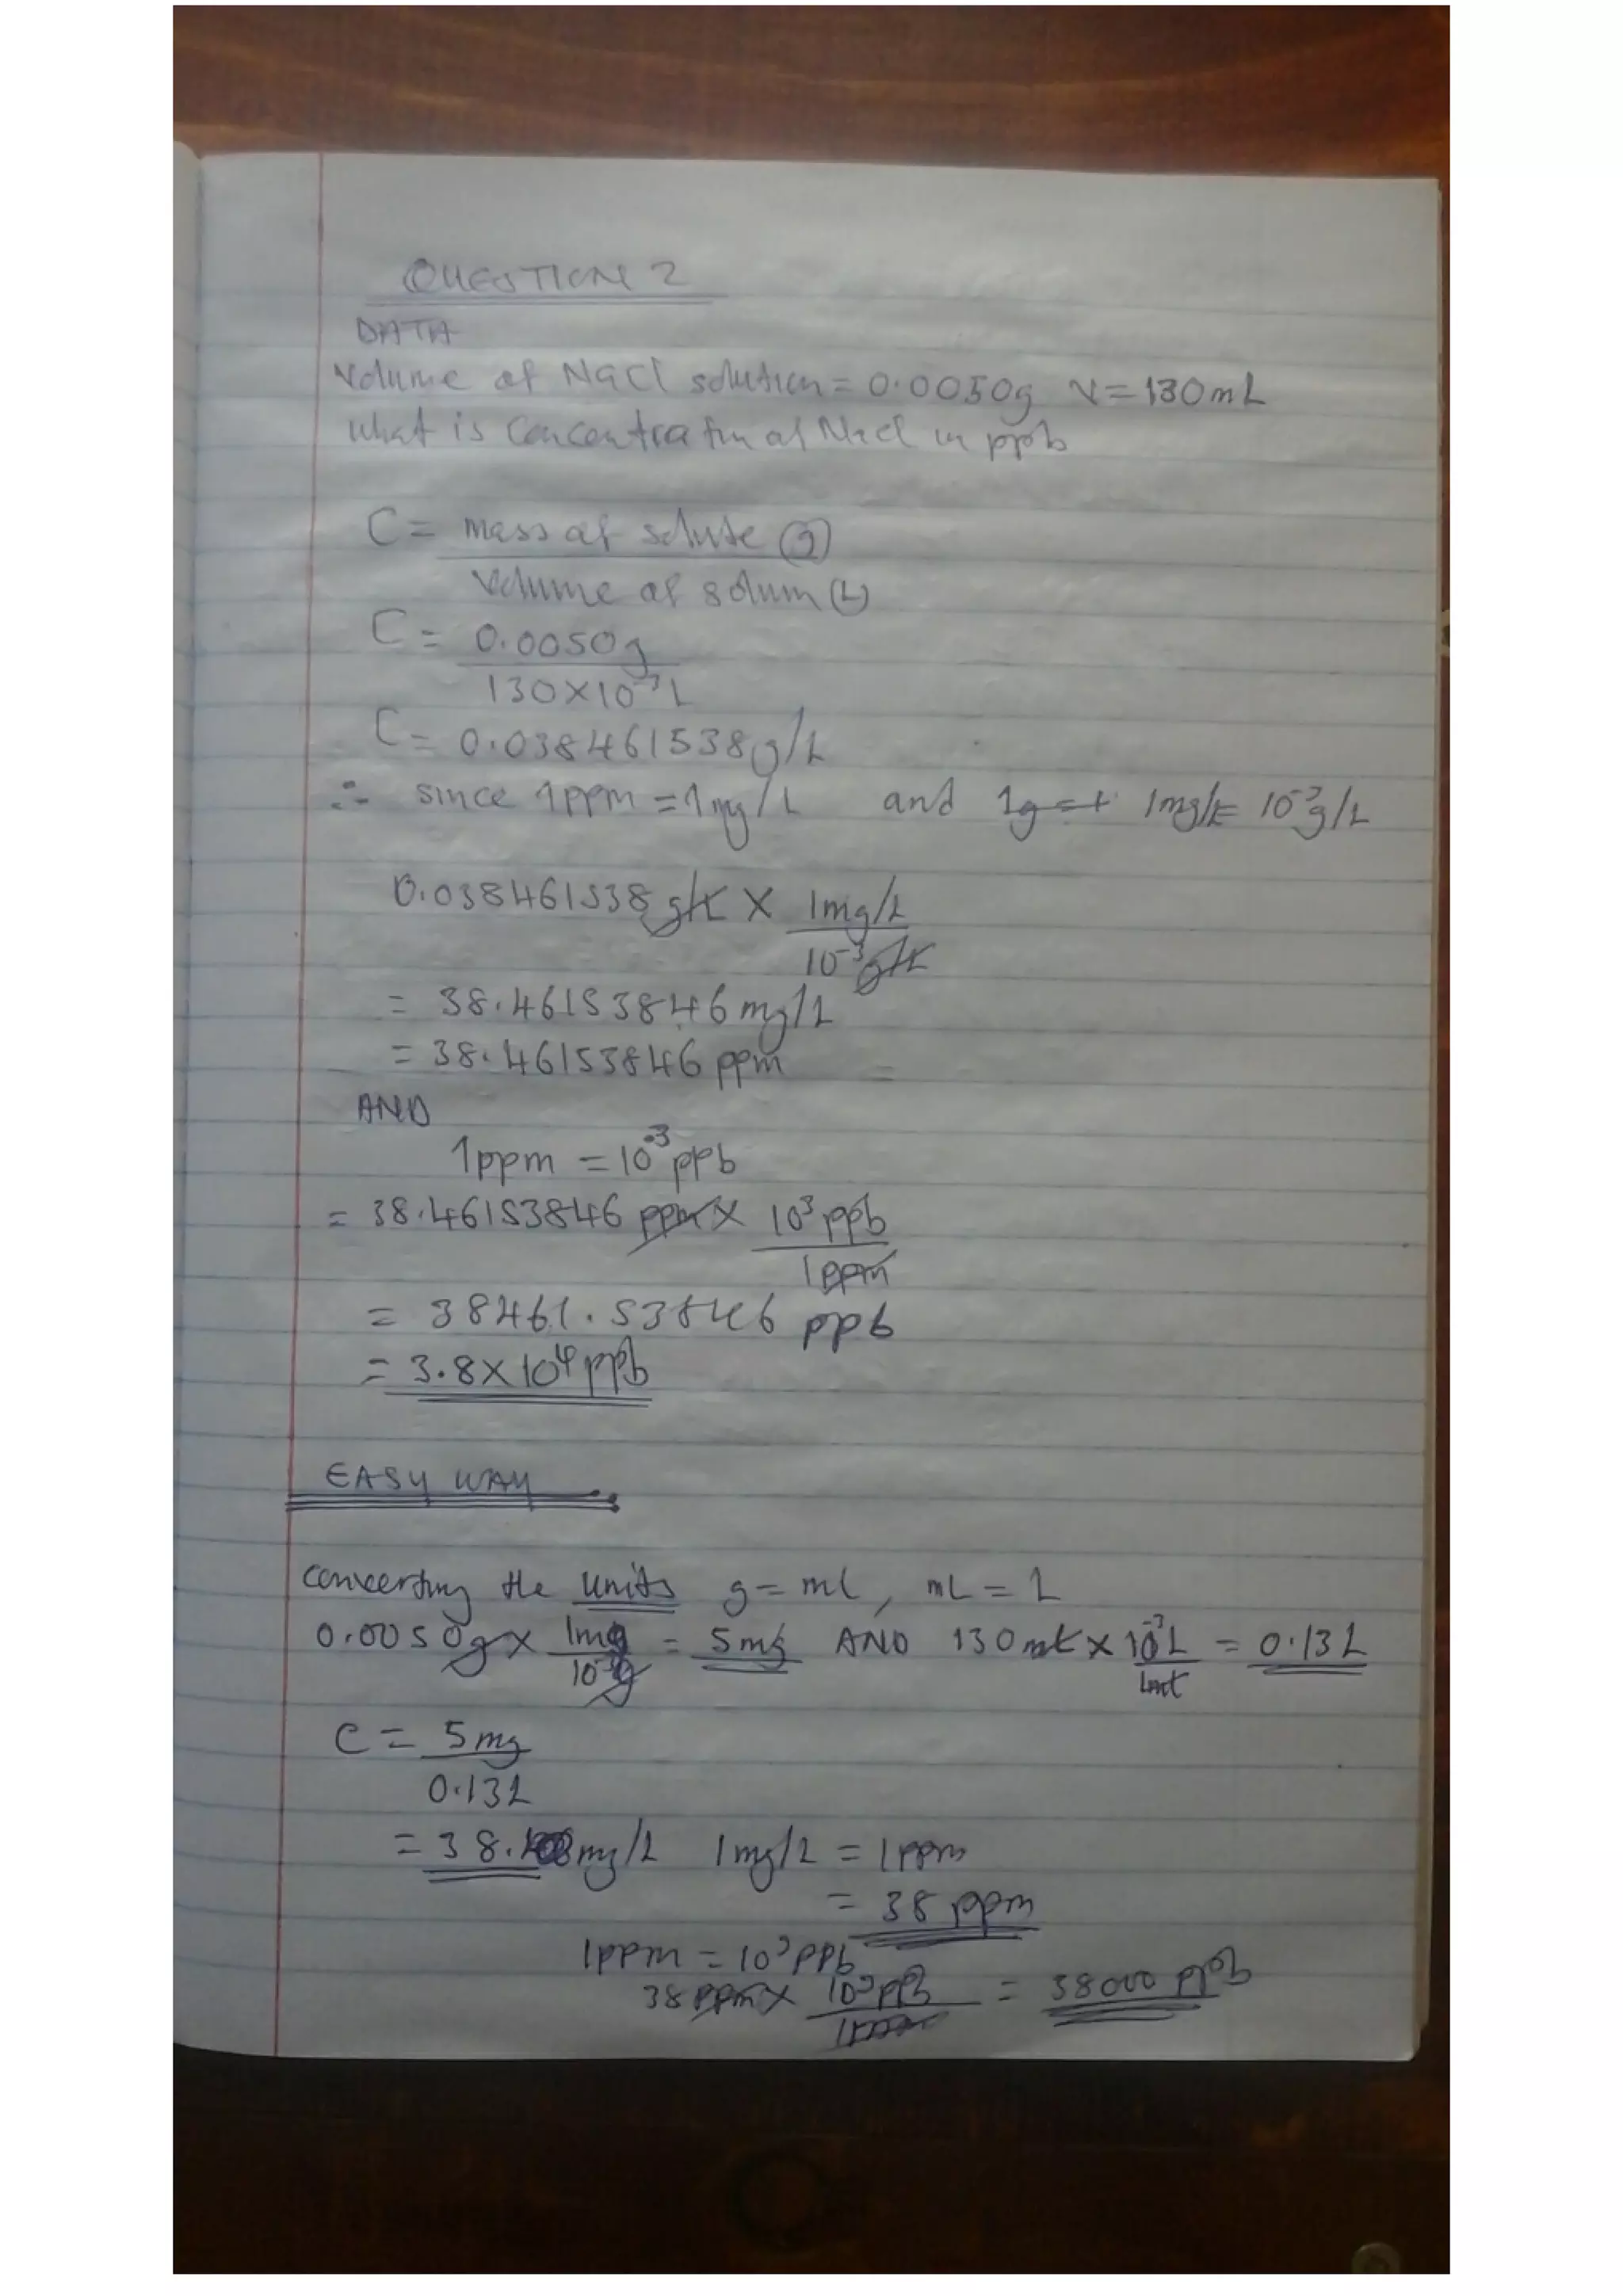 QUESTION 2
DATA
Volume of NaCl solution = 0.0050g V = 130mL
What is Concentration of NaCl in ppb
C = mass of solute (g)
volume of solum (L)
C = 0.0050g
130 × 10⁻³ L
C = 0.038461538 g/L
∴ since 1ppm = 1mg/L and 1g = 1mg/L = 10⁻³g/L
0.038461538 g/L × 1mg/L
10⁻³ g/L
= 38.46153846 mg/L
= 38.46153846 ppm
AND
1ppm = 10⁻³ ppb
= 38.46153846 ppm × 10³ ppb
1ppm
= 38461.53846 ppb
= 3.8 × 10⁴ ppb
EASY WAY
Converting the units g = ml, mL = L
0.0050g × 1mg = 5mg AND 130mL × 10⁻³L = 0.13L
10⁻³g 1mL
C = 5mg
0.13L
= 38. mg/L 1mg/L = 1ppm
= 38 ppm
1ppm = 10³ ppb
38ppm × 10³ ppb = 38000 ppb
1ppm